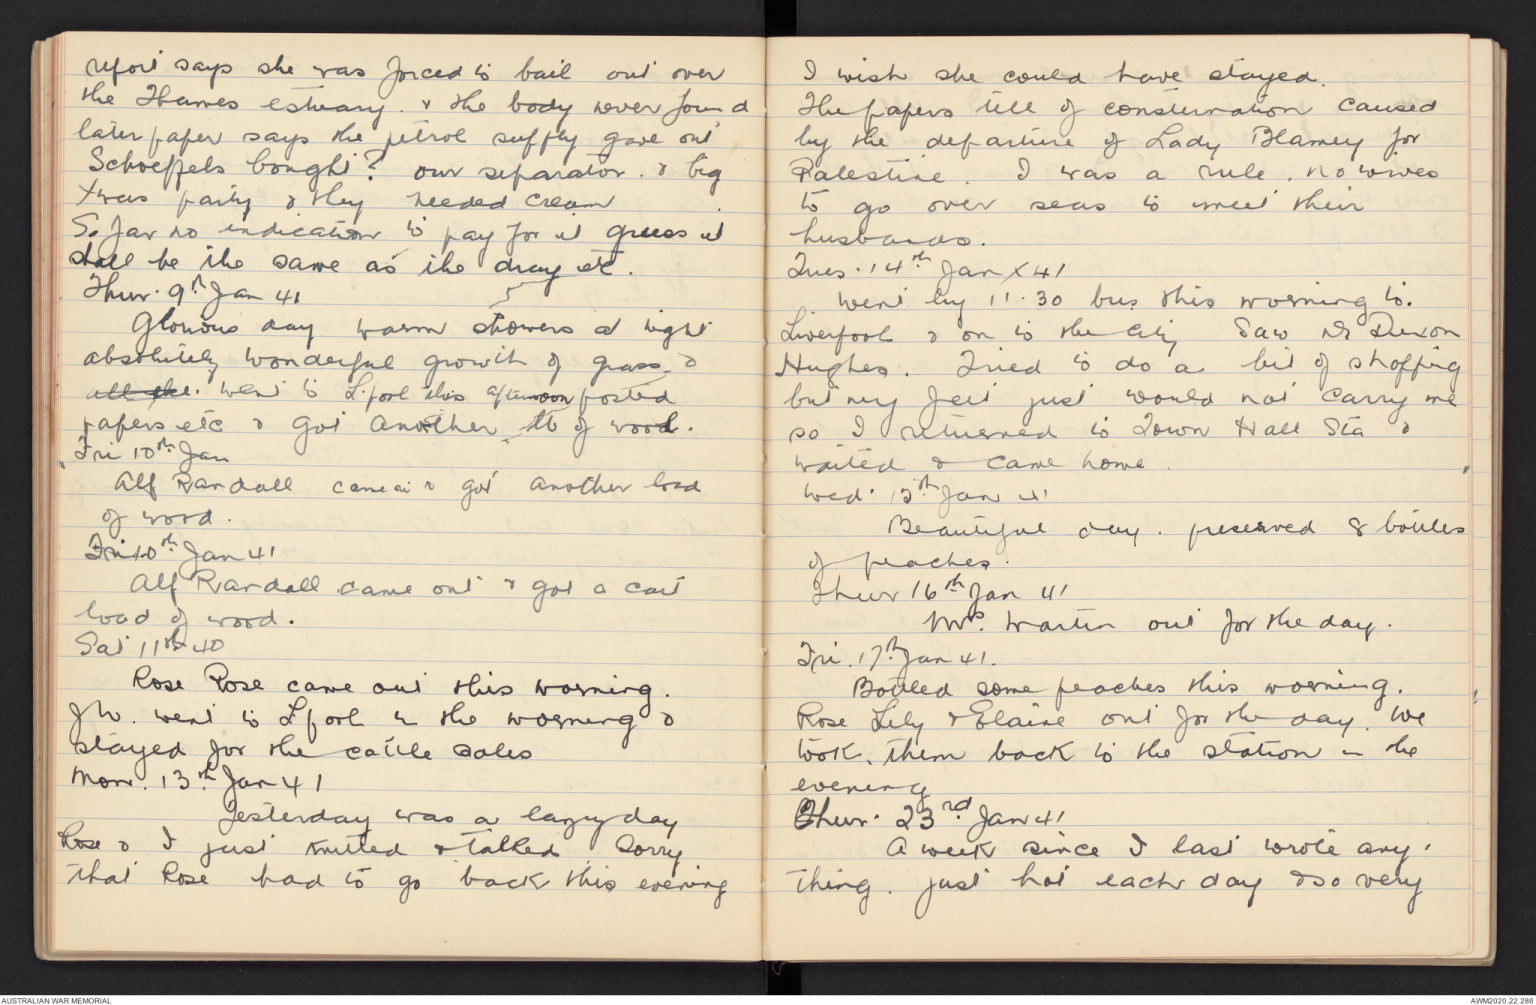 report says she was forced to bail out over
the Thames estuary. & the body never found
later paper says the petrol supply gave out
Schoeffels bought? our separator. & big
Xwas party & they needed cream
So far no indication to pay for it guess it
shall be the same as the dray etc.
Thur. 9th Jan 41
Glorious day warm showers at night
absolutely wonderful growth of grass &
all the. went to L.pool this afternoon posted
papers etc & got another of wood.
Fri 10th Jan
Alf Randall came & got another load
of wood.
Fri 10th Jan 41
Alf Randall came out & got a cart
load of wood.
Sat 11th 40
Rose Rose came out this morning.
JW. went to Lpool in the morning &
stayed for the cattle sales
Mon. 13th Jan 41
Yesterday was a lazy day
Rose & I just knitted & talked Sorry
that Rose had to go back this evening
I wish she could have stayed.
The papers tell of consternation caused
by the departure of Lady Blamey for
Palestine. I was a rule, no wives
to go over seas to meet their
husbands.
Tues. 14th Jan X 41
Went by 11.30 bus this morning to.
Liverpool & on to the City Saw Dr Dixon
Hughes. Tried to do a bit of shopping
but my feet just would not carry me
so I returned to Town Hall Sta &
waited & came home.
Wed. 15th Jan 41
Beautiful day. preserved 8 bottles
of peaches.
Thur 16th Jan 41
Mrs. Martin out for the day.
Fri. 17th Jan 41.
Bottled some peaches this morning.
Rose Lily & Elaine out for the day. We
took them back to the station in the
evening
Thur. 23rd Jan 41
A week since I last wrote any.
thing. Just hot each day & so very
AUSTRALIAN WAR MEMORIAL
AWM2020.22.286